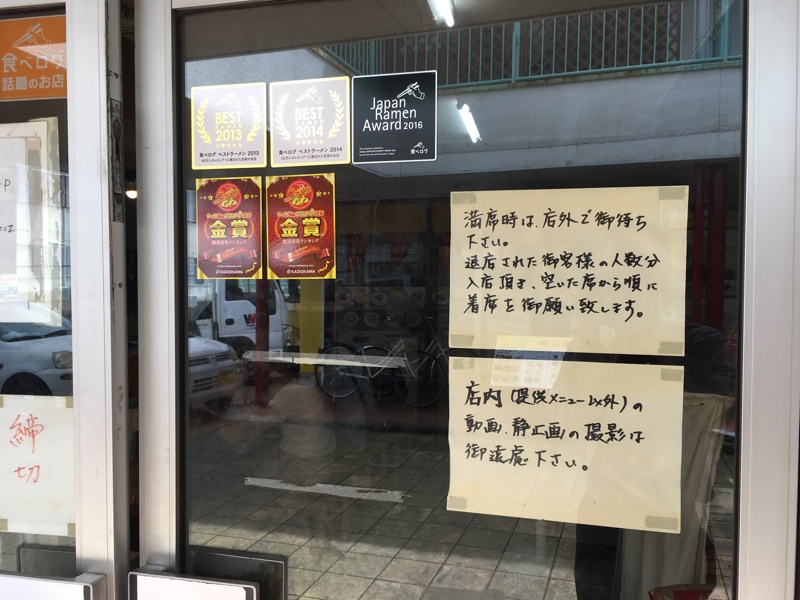 食べログ
話題のお店
BEST
2013
食べログ ベストラーメン 2013
BEST
2014
食べログ ベストラーメン 2014
Japan
Ramen
Award 2016
食べログ
金賞
KADOKAWA
金賞
KADOKAWA
満席時は、店外で御待ち
下さい。
退店された御客様の人数分
入店頂き、空いた席から順に
着席を御願い致します。
店内(提供メニュー以外)の
動画、静止画の撮影は
御遠慮下さい。
締
切